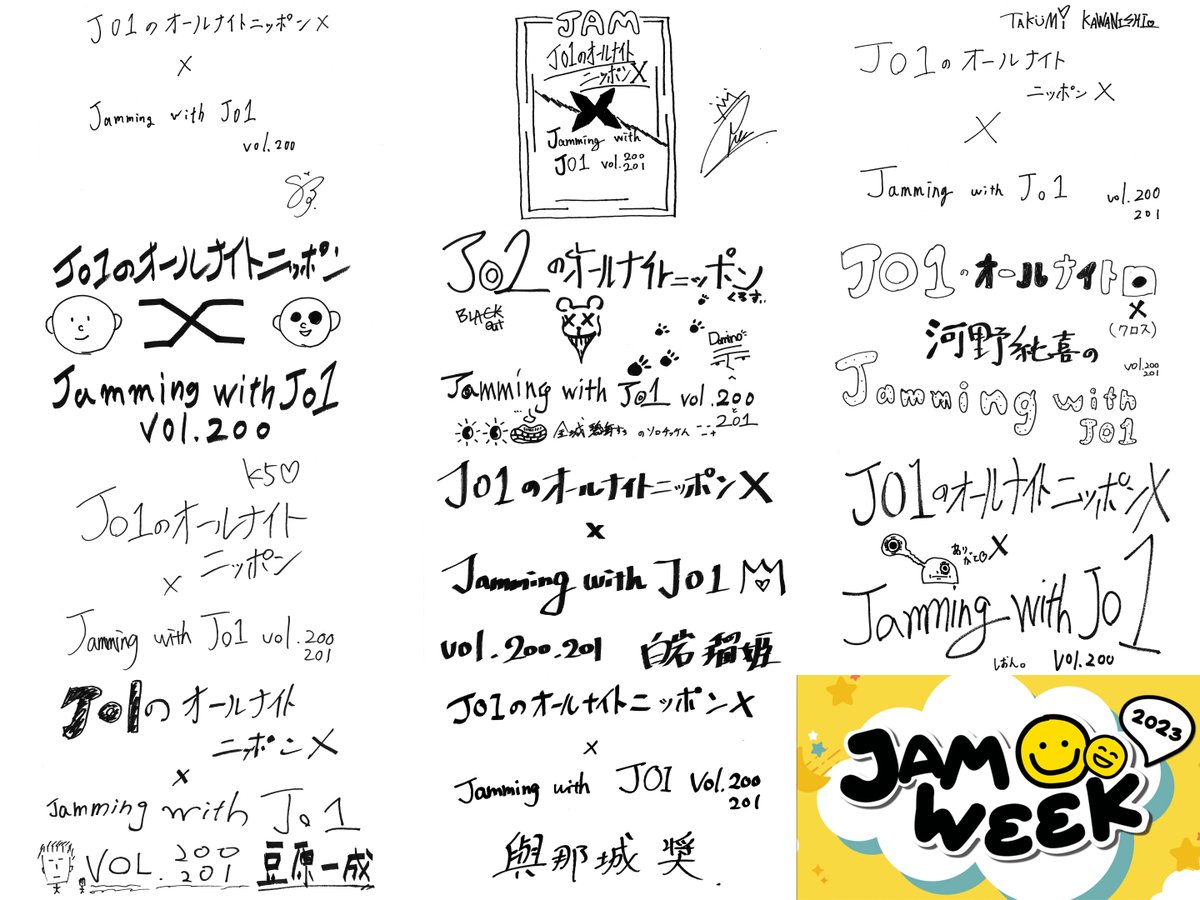 JO1のオールナイトニッポンX
X
Jamming with JO1
vol.200
JAM
JO1のオールナイト
ニッポンX
X
Jamming with
JO1 vol.200
201
TAKUMi KAWANISHI。
JO1のオールナイト
ニッポンX
X
Jamming with JO1 vol.200
201
JO1のオールナイトニッポン
X
Jamming with JO1
VOl.200
JO1のオールナイトニッポン
くろす。
BLACK
out
Domino
Jamming with JO1 vol.200
と201
JO1のオールナイト
X
(クロス)
河野純喜の
vol.200
201
Jamming with
JO1
K5♡
JO1のオールナイト
ニッポン
X
Jamming with JO1 vol.200
201
JO1のオールナイトニッポンX
x
Jamming with JO1
vol.200.201 白岩瑠姫
JO1のオールナイトニッポンX
ありがとう
X
Jamming with JO1
しおん。 Vol.200
JO1のオールナイト
ニッポンX
x
Jamming with JO1
VOL.200
201 豆原一成
JO1のオールナイトニッポンX
x
Jamming with JO1 Vol.200
201
與那城 奨.
2023
JAM
WEEK